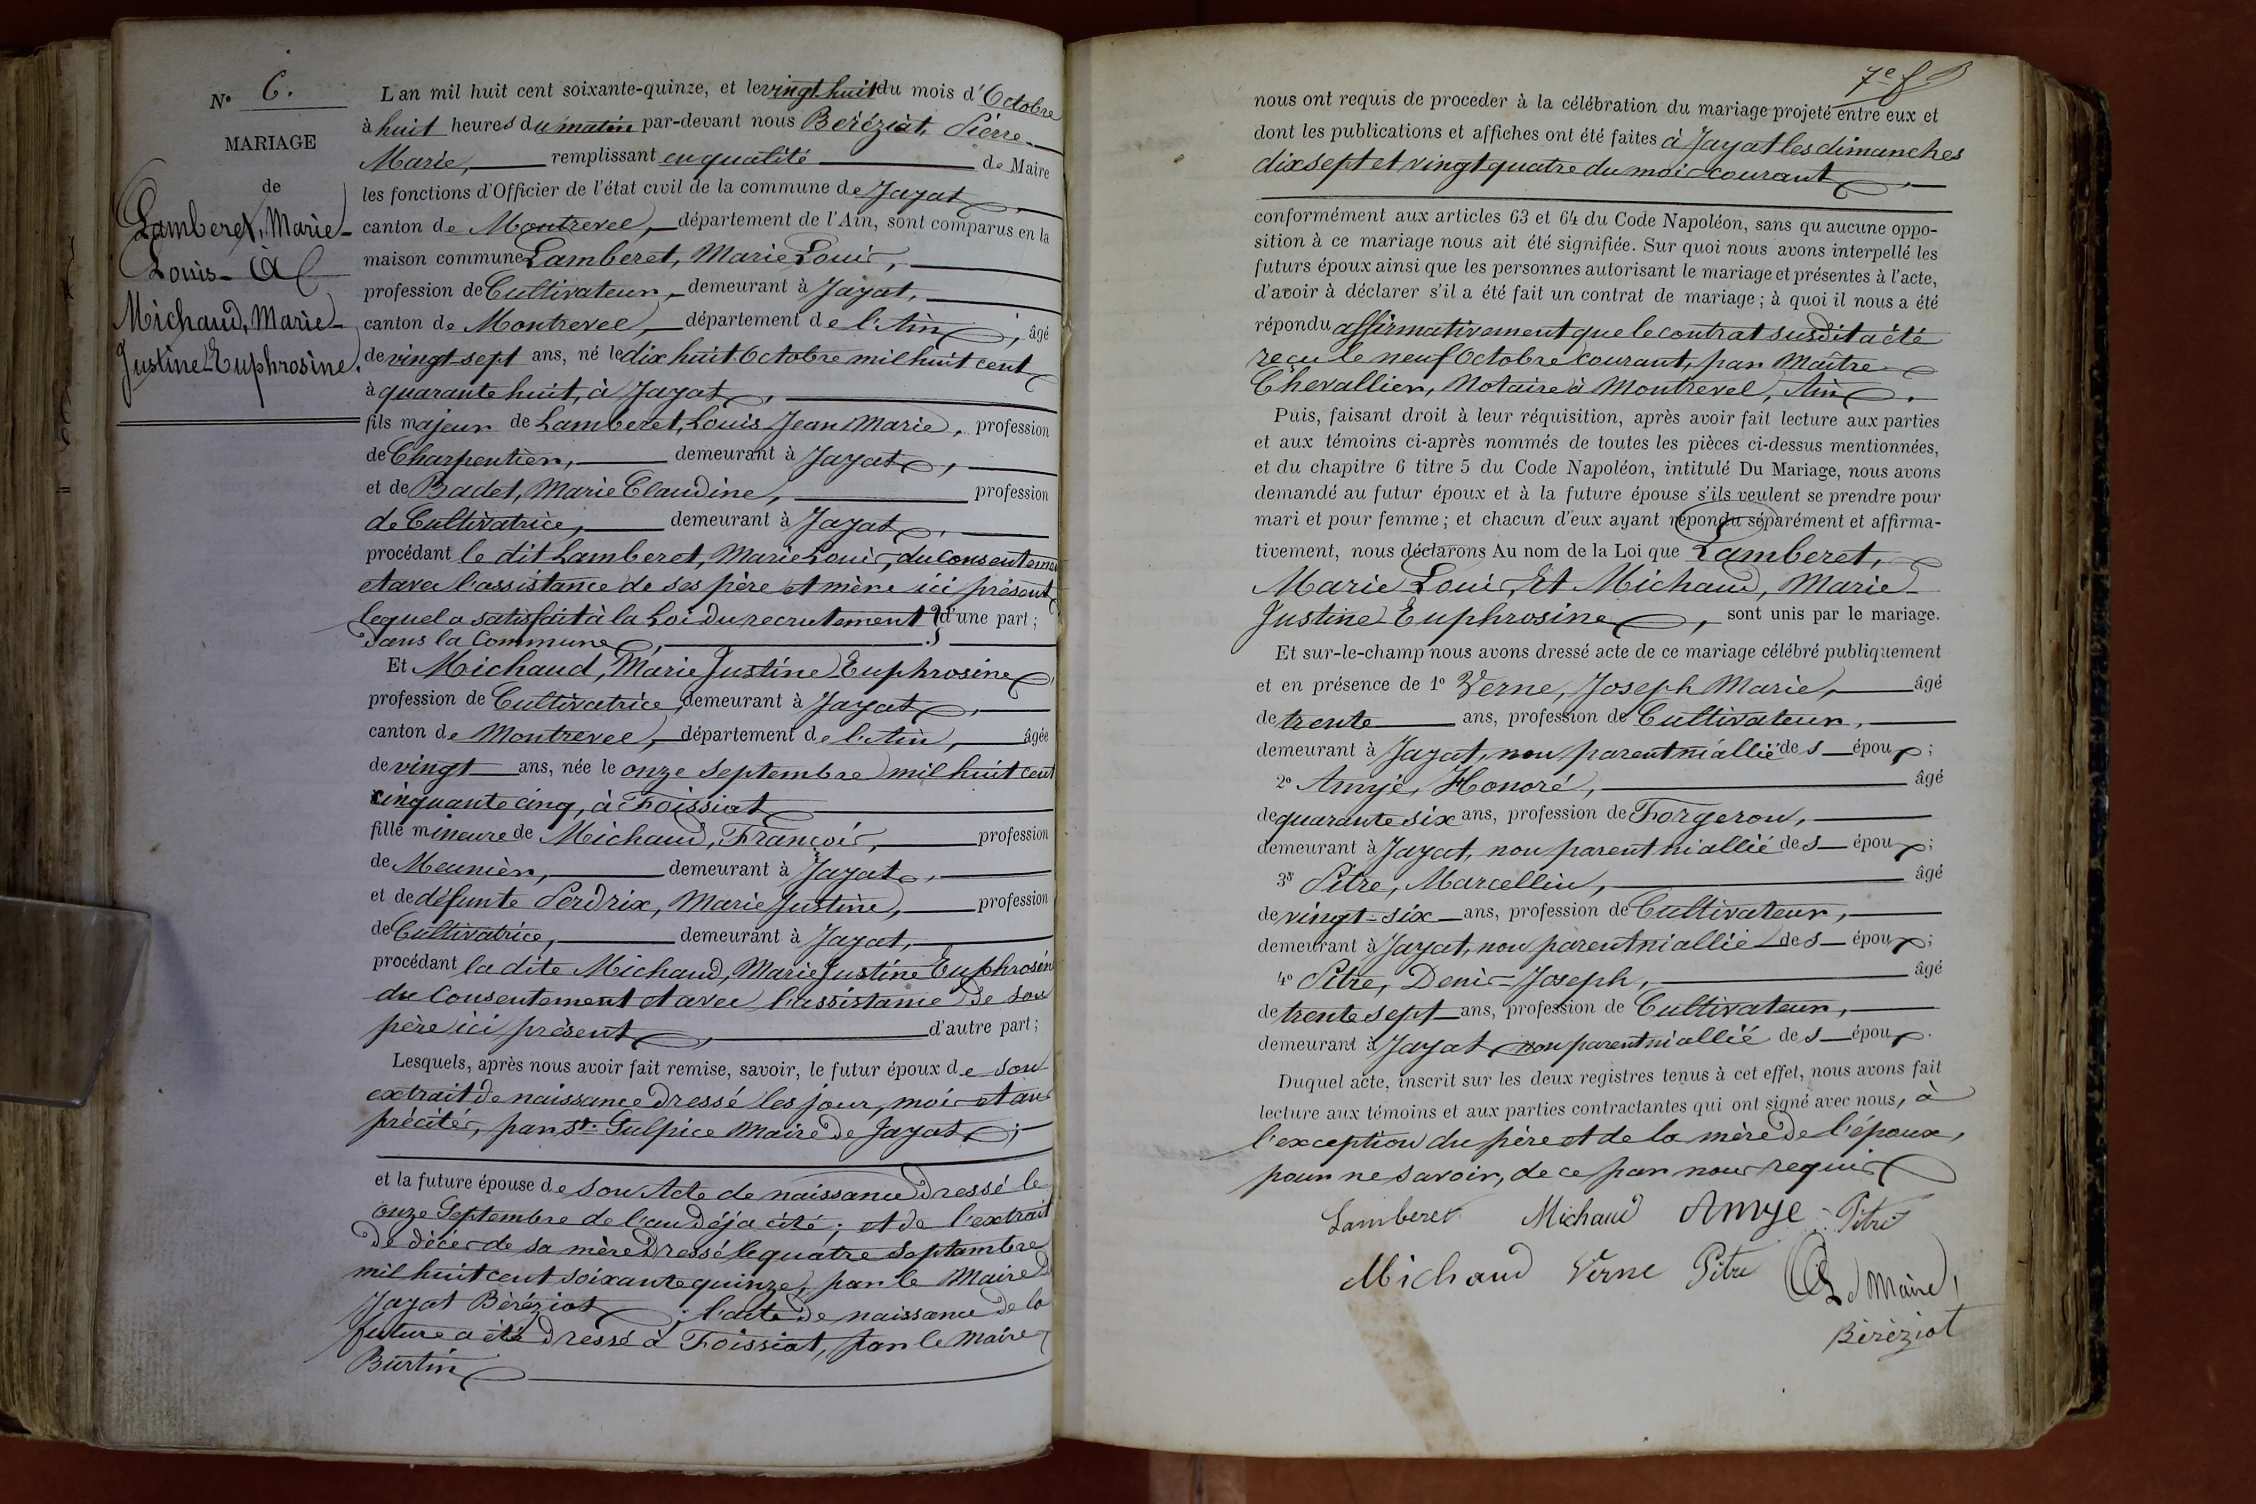 N° 6.
MARIAGE
de
Lamberet, Marie-
Louis - à
Michaud, Marie-
Justine Euphrosine.
L'an mil huit cent soixante-quinze, et le vingt huit du mois d'Octobre
à huit heures du matin par-devant nous Béréziat, Pierre-
Marie, remplissant en qualité de Maire
les fonctions d'Officier de l'état civil de la commune de Jayat
canton de Montrevel, département de l'Ain, sont comparus en la
maison commune Lamberet, Marie Louis,
profession de Cultivateur, demeurant à Jayat,
canton de Montrevel, département de l'Ain, âgé
de vingt-sept ans, né le dix huit Octobre mil huit cent
à quarante huit, à Jayat,
fils majeur de Lamberet, Louis Jean Marie, profession
de Charpentier, demeurant à Jayat,
et de Badet, Marie Claudine, profession
de Cultivatrice, demeurant à Jayat,
procédant le dit Lamberet, Marie Louis, du consentement
et avec l'assistance de ses père et mère ici présent
lequel a satisfait à la Loi du recrutement d'une part;
dans la Commune,
Et Michaud, Marie Justine Euphrosine,
profession de Cultivatrice, demeurant à Jayat,
canton de Montrevel, département de l'Ain, âgée
de vingt ans, née le onze Septembre mil huit cent
cinquante cinq, à Foissiat
fille mineure de Michaud, François, profession
de Meunier, demeurant à Jayat,
et de défunte Perdrix, Marie Justine, profession
de Cultivatrice, demeurant à Jayat,
procédant la dite Michaud, Marie Justine Euphrosine
du Consentement et avec l'assistance de son
père ici présent, d'autre part;
Lesquels, après nous avoir fait remise, savoir, le futur époux de son
extrait de naissance dressé les jour, mois et an
précités, par St. Sulpice Maire de Jayat;
et la future épouse de son Acte de naissance dressé le
onze Septembre de l'an déjà cité; et de l'extrait
de décès de sa mère dressé le quatre Septambre
mil huit cent soixante quinze, par le Maire de
Jayat Béréziat; l'acte de naissance de la
future a été dressé à Foissiat, par le Maire
Burtin
7e f B
nous ont requis de procéder à la célébration du mariage projeté entre eux et
dont les publications et affiches ont été faites à Jayat les dimanches
dix sept et vingt quatre du mois courant,
conformément aux articles 63 et 64 du Code Napoléon, sans qu'aucune oppo-
sition à ce mariage nous ait été signifiée. Sur quoi nous avons interpellé les
futurs époux ainsi que les personnes autorisant le mariage et présentes à l'acte,
d'avoir à déclarer s'il a été fait un contrat de mariage; à quoi il nous a été
répondu affirmativement que le contrat susdit a été
reçu le neuf Octobre courant, par Maître
Chevallier, Notaire à Montrevel, Ain.
Puis, faisant droit à leur réquisition, après avoir fait lecture aux parties
et aux témoins ci-après nommés de toutes les pièces ci-dessus mentionnées,
et du chapitre 6 titre 5 du Code Napoléon, intitulé Du Mariage, nous avons
demandé au futur époux et à la future épouse s'ils veulent se prendre pour
mari et pour femme; et chacun d'eux ayant répondu séparément et affirma-
tivement, nous déclarons Au nom de la Loi que Lamberet,
Marie Louis, Et Michaud, Marie-
Justine Euphrosine, sont unis par le mariage.
Et sur-le-champ nous avons dressé acte de ce mariage célébré publiquement
et en présence de 1° Verne, Joseph Marie, âgé
de trente ans, profession de Cultivateur,
demeurant à Jayat, non parent ni allié des époux;
2° Amyé, Honoré, âgé
de quarante six ans, profession de Forgeron,
demeurant à Jayat, non parent ni allié des époux;
3° Pitre, Marcellin, âgé
de vingt-six ans, profession de Cultivateur,
demeurant à Jayat, non parent ni allié des époux;
4° Pitre, Denis-Joseph, âgé
de trente sept ans, profession de Cultivateur,
demeurant à Jayat non parent ni allié des époux.
Duquel acte, inscrit sur les deux registres tenus à cet effet, nous avons fait
lecture aux témoins et aux parties contractantes qui ont signé avec nous, à
l'exception du père et de la mère de l'époux,
pour ne savoir, de ce par nous requis
Lamberet Michaud Amye Pitre
Michaud Verne Pitre Le Maire,
Béréziat